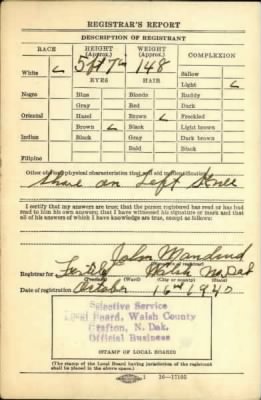 REGISTRAR'S REPORT
DESCRIPTION OF REGISTRANT
RACE HEIGHT (Approx.) WEIGHT (Approx.) COMPLEXION
5 ft 7 148
White Sallow
EYES HAIR Light
Negro Blue Blonde Ruddy
Gray Red Dark
Oriental Hazel Brown Freckled
Brown Black Light brown
Indian Black Gray Dark brown
Bald Black
Filipino
Other obvious physical characteristics that will aid in identification
on Left Knee
I certify that my answers are true; that the person registered has read or has had
read to him his own answers; that I have witnessed his signature or mark and that
all of his answers of which I have knowledge are true, except as follows:
John
(Signature of registrar)
Registrar for Walsh No Dak
(Precinct) (Ward) (City or county) (State)
Date of registration October 16th 1940
Selective Service
Local Board, Walsh County
Grafton, N. Dak.
Official Business
(STAMP OF LOCAL BOARD)
(The stamp of the Local Board having jurisdiction of the registrant
shall be placed in the above space.)
16—17105